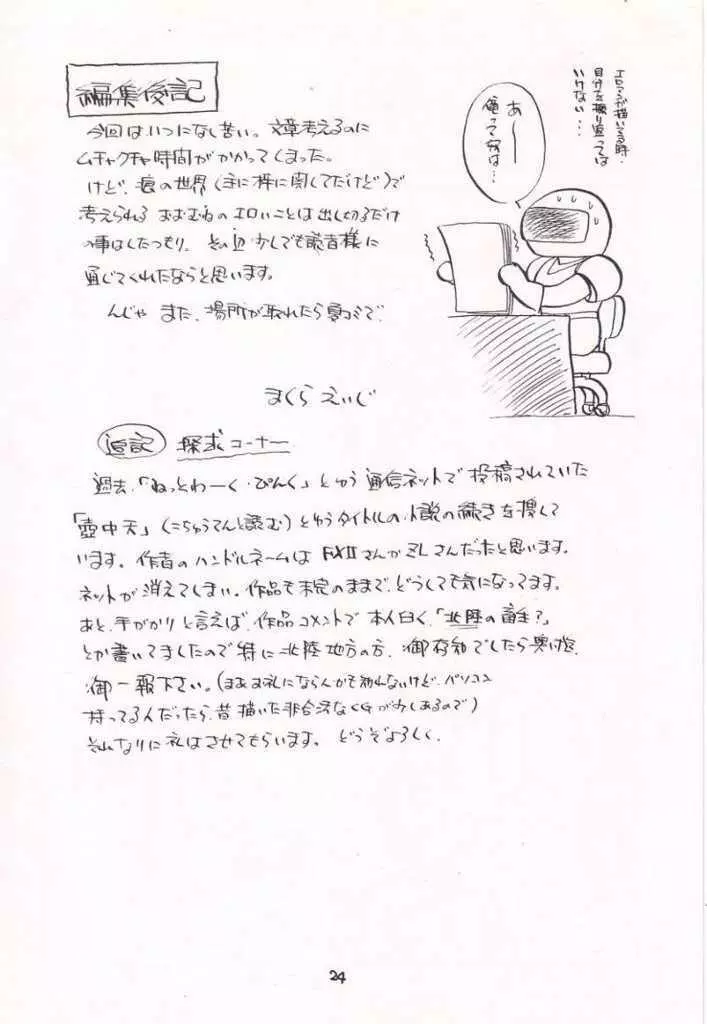 編集後記
今回はいつになし苦い。文章考えるのに
ムチャクチャ時間がかかってしまった。
けど、痕の世界(主に梓に関してだけど)で
考えられるおおむねのエロいことは出し切るだけ
の事はしたつもり。その辺少しでも読者様に
通じてくれたならと思います。
んじゃ また、場所が取れたら夏コミで。
まくら えいじ
エロマンガ描いてる時、
自分を振り返っては
いけない…
あ〜
俺って奴は…
追記 探求コーナー
過去、「ねっとわーく・ぴんく」とゆう通信ネットで投稿されていた
「壺中天」(こちゅうてんと読む)とゆうタイトルの小説の続きを捜して
います。作者のハンドルネームはFXⅡさんかZLさんだったと思います。
ネットが消えてしまい、作品も未完のままで、どうしても気になってます。
あと、手がかりと言えば、作品コメントで本人曰く、「北陸の畜生?」
とか書いてましたので特に北陸地方の方、御存知でしたら
御一報下さい。(まあお礼にならんかも知れないけど、パソコン
持ってるんだったら、昔描いた非合法なCGが少しあるので)
それなりに礼はさせてもらいます。どうぞよろしく。
24